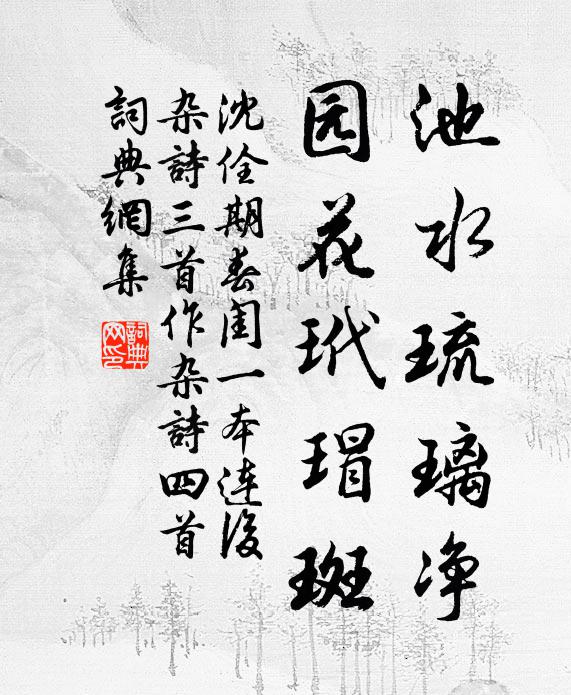 池水琉璃净
园花玳瑁斑
沈佺期春闺一本连後
杂詩三首作杂詩四首
詞典網集
詞典网印